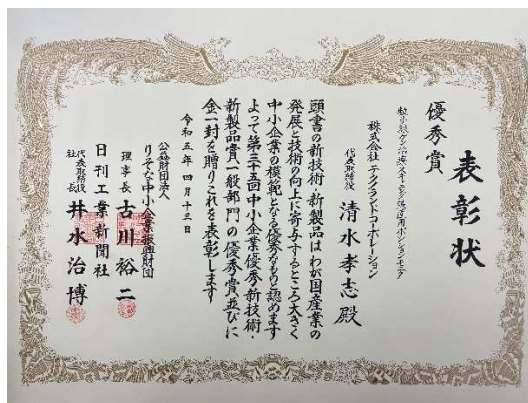 表彰状
優秀賞
粒子線ガン治療スキャニング照射用ポジションモニタ
株式会社 テクノランドコーポレーション
代表取締役 清水孝志 殿
頭書の新技術・新製品はわが国産業の
発展と技術の向上に寄与するところ大きく
中小企業の模範となる優秀なものと認めます
よって第三十五回中小企業優秀新技術・
新製品賞一般部門の優秀賞並びに
金一封を贈りこれを表彰します
令和五年四月十三日
公益財団法人
りそな中小企業振興財団
理事長 古川裕二
日刊工業新聞社
代表取締役社長 井水治博